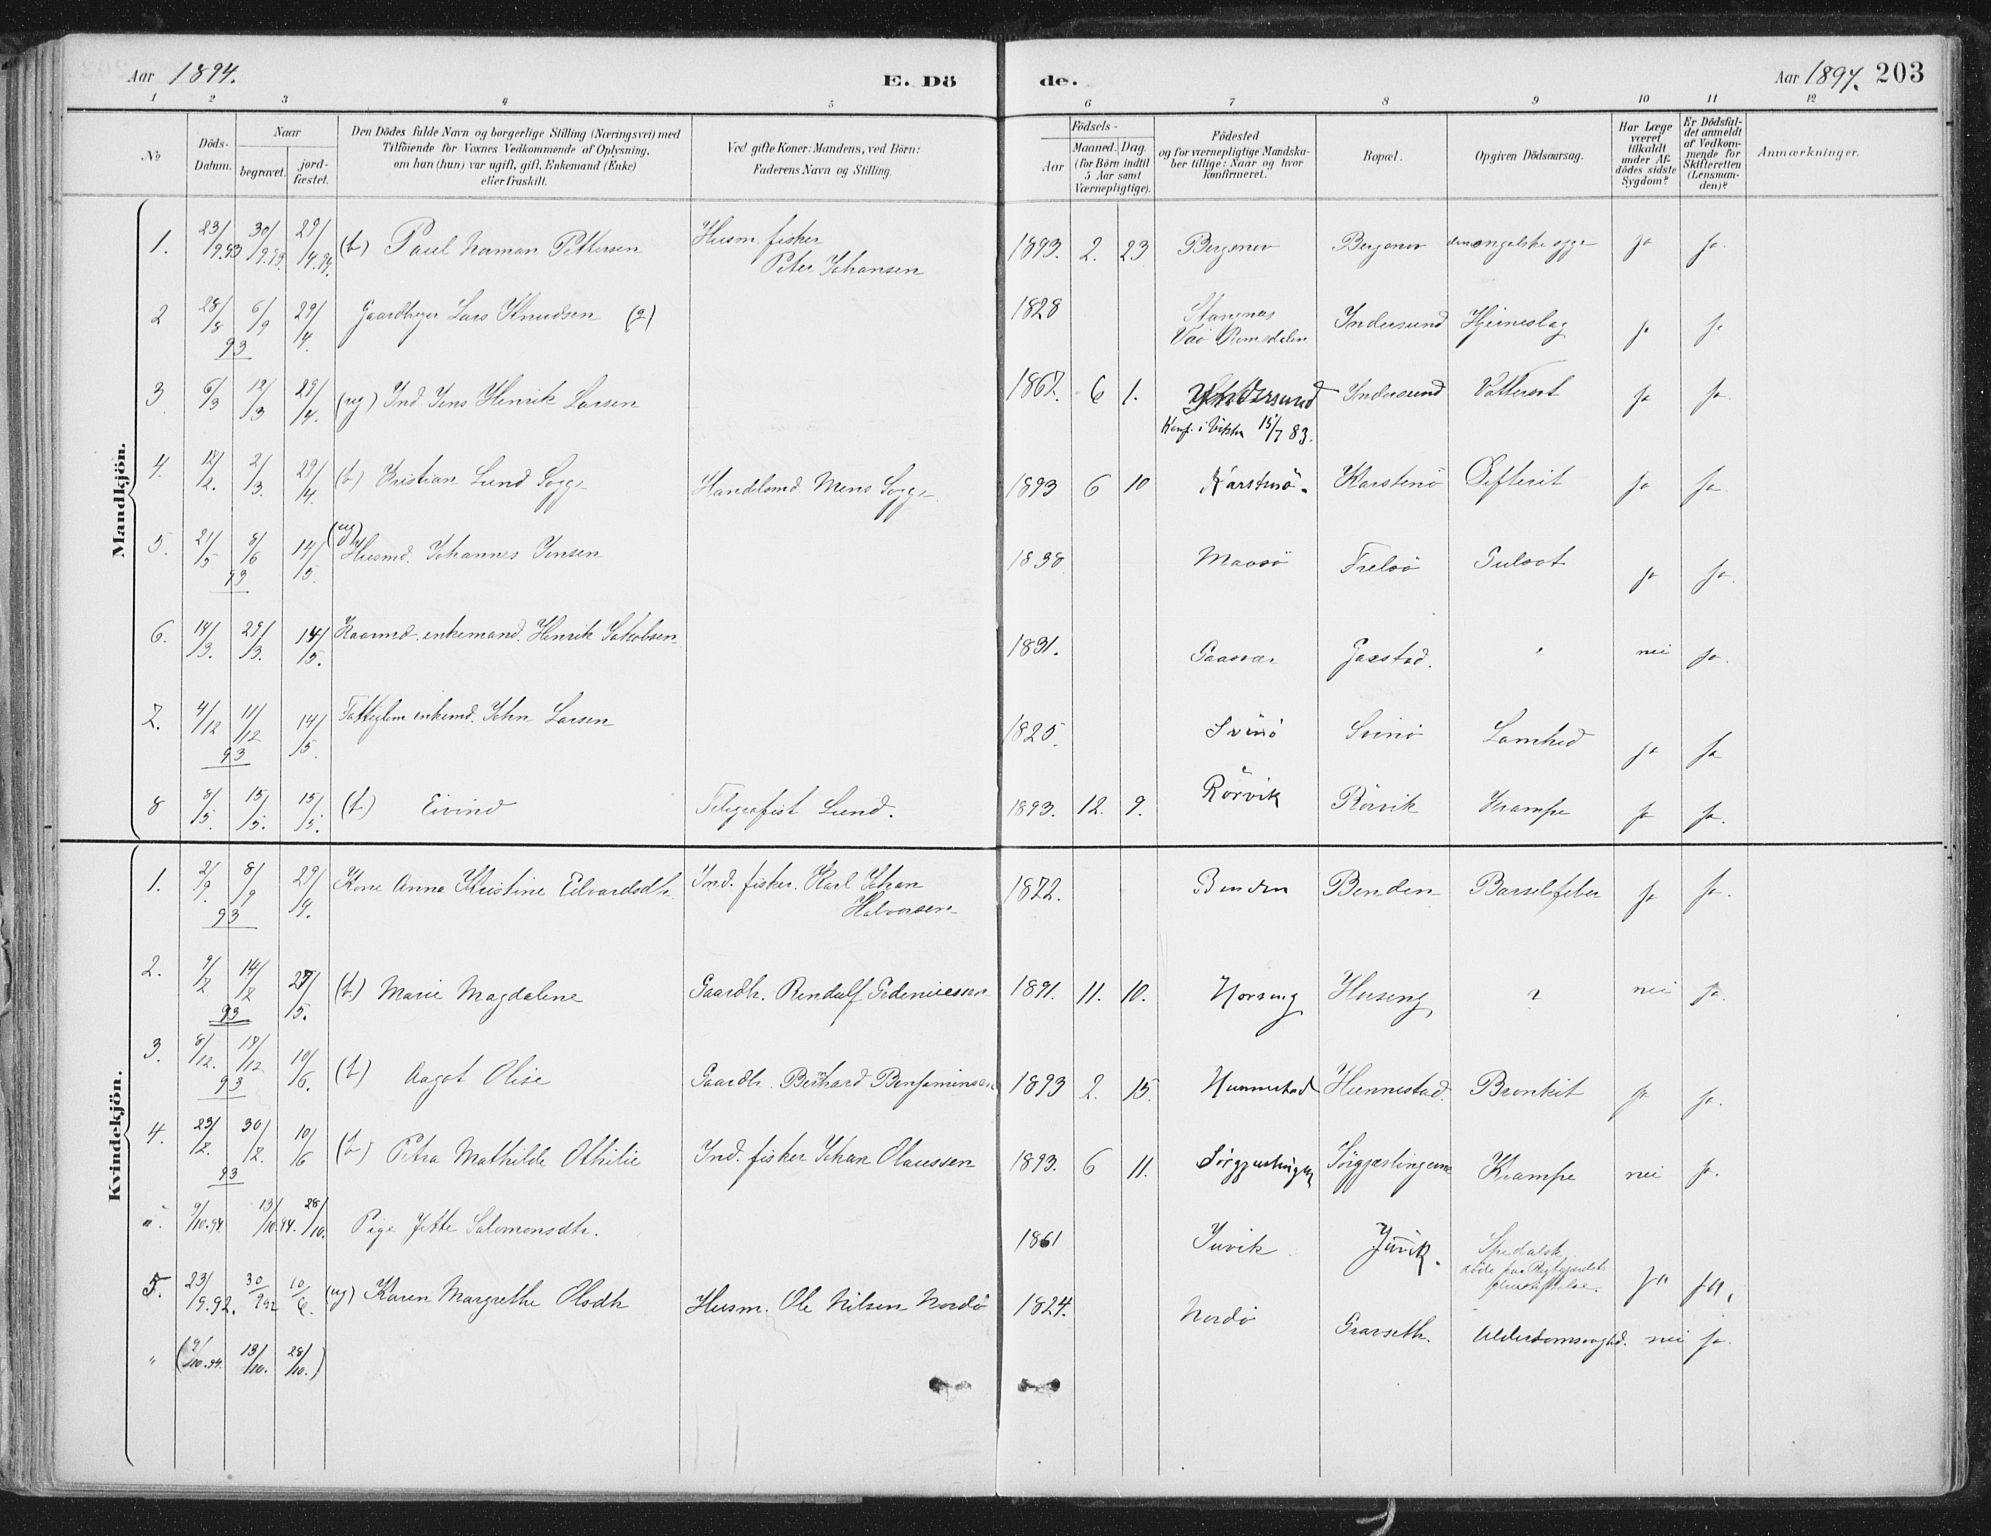 Aar 1894. E. Dö de. Aar 1894. 203
1 2 3 4 5 6 7 8 9 10 11 12
No
Döds-Datum.
Naar
begravet.
jord-fæstet.
Den Dödes fulde Navn og borgerlige Stilling (Næringsvei) med
Tilföiende for Voxnes Vedkommende af Oplysning,
om han (hun) var ugift, gift, Enkemand (Enke)
eller fraskilt.
Ved gifte Koner: Mandens, ved Börn:
Faderens Navn og Stilling.
Födsels-
Aar
Maaned. Dag.
(for Börn indtil
5 Aar samt
Værnepligtige).
Födested
og for værnepligtige Mandska-
ber tillige: Naar og hvor
konfirmeret.
Bopæl.
Opgiven Dödsaarsag.
Har Læge
været
tilkaldt
under Af-
dödes sidste
Sygdom?
Er Dödsfal-
det anmeldt
af Vedkom-
mende for
Skifteretten
(Lensman-
den)?
Anmærkninger.
Mandkjön.
1. 23/9.93 30/9.93. 29/4.94. (b) Paul Norman Pettersen Husm. fisker 1893. 2. 23 Bergsnov Bergsnov den engelske syge ja ja.
Peter Johansen
2 28/8 6/9 29/4. Gaardbruger Lars Knudsen (g) 1828 Indersund Hjerneslag ja ja
93 Romsdalen
3 6/3 12/3 29/4. (ug) Ind. Jens Henrik Larsen 1867. 6 1. Indersund Indersund Vattersot ja ja.
Konf. i 15/7 83.
4. 12/2. 2/3. 29/4 (b) Kristian Lund Sogge Handelsmd. Mons Sogge 1893 6 10 Karstenö. Karstenö Difterit ja ja.
5. 21/5 8/6 14/5. (ug) Husmd. Johannes Jensen 1838 Maasö Frelsö Pulsot ja ja.
93
6. 14/3. 29/3. 14/5. Kaarmd. enkemand. Henrik Jakobsen 1831. Gaasvær Gaestad. " nei ja.
7. 4/12 11/12 14/5. enkemd. John Larsen 1825. Svinö Svinö Lamhed ja ja
93
8 8/5. 15/5. 15/5. (b) Eivind Telegrafist Lund. 1893. 12. 9. Rörvik Rörvik Krampe ja ja.
Kvindekjön.
1. 2/9. 8/9 29/4. Kone Anna Kristine Edvardsdtr. Ind. fisker. Karl Johan 1872. Benden Benden Barselfeber ja ja.
93 Halvorsen
2. 9/2 14/2 27/5. (b) Marie Magdalene Gaardb. 1891. 11. 10. Horseng Horseng ? nei ja.
93
3. 8/12. 18/12 10/6. (b) Aagot Olise Gaardb. Bernhard Benjaminsen 1893 2. 15. Hunnestad Hunnestad. Bronkit ja ja.
93
4. 23/2. 30/12. 10/6 (b) Petra Mathilde Othilie Ind. fisker Johan Olaussen 1893. 6 11. Sörgjæslingen Sörgjæslingerne Krampe nei ja.
93
9/10.94 13/10.94. 28/10. Pige Jette Salomonsdtr. 1861 Juvik Juvik. Spedalsk
döde paa Reitgjærdets
pleiestiftelse. ja ja.
5. 23/9.92. 30/9 92 10/6. (ug) Karen Margrethe Olsdtr Husm. Ole Nilsen Nordö 1824. Nordö Grarseth. Alderdomssvaghed. nei ja.
" (9/10.94. 13/10. 28/10.)